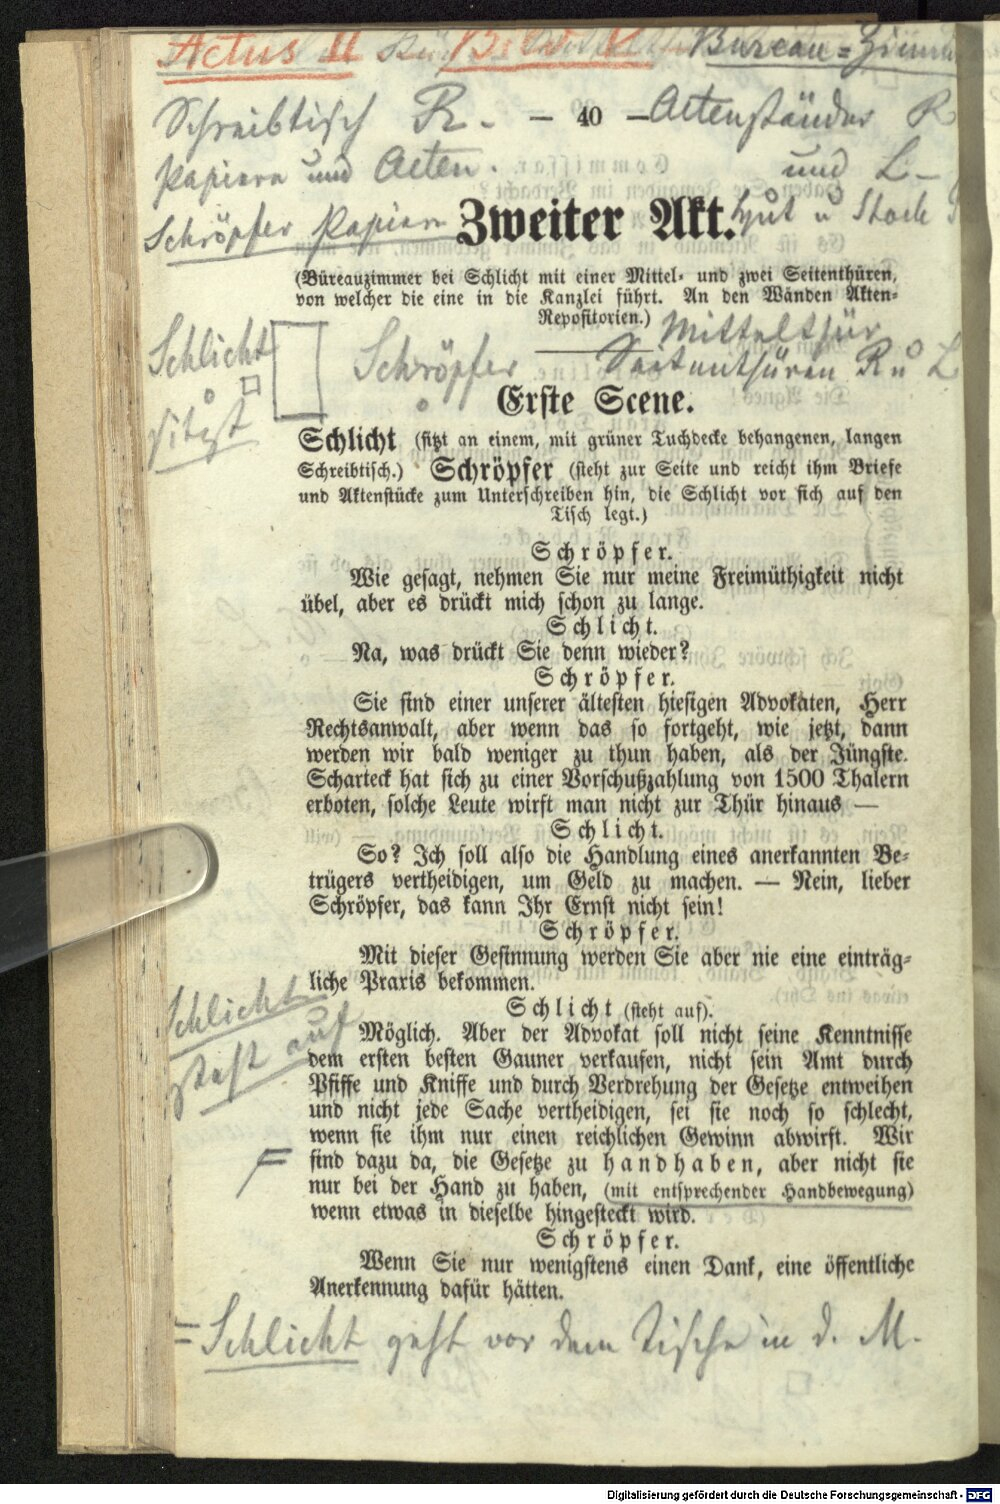 Actus II Bild V Bureau=Zimm
Schreibtisch R. — 40 — Actenständer R
Papiere und Acten. und L
Schröpfer Papiere Zweiter Akt. Hut u Stock
(Büreauzimmer bei Schlicht mit einer Mittel- und zwei Seitenthüren,
von welcher die eine in die Kanzlei führt. An den Wänden Akten-
Repositorien.) Mittelthür
Schlicht Schröpfer Seitenthüren R u L
sitzt
Erste Scene.
Schlicht (sitzt an einem, mit grüner Tuchdecke behangenen, langen
Schreibtisch.) Schröpfer (steht zur Seite und reicht ihm Briefe
und Aktenstücke zum Unterschreiben hin, die Schlicht vor sich auf den
Tisch legt.)
Schröpfer.
Wie gesagt, nehmen Sie nur meine Freimüthigkeit nicht
übel, aber es drückt mich schon zu lange.
Schlicht.
Na, was drückt Sie denn wieder?
Schröpfer.
Sie sind einer unserer ältesten hiesigen Advokaten, Herr
Rechtsanwalt, aber wenn das so fortgeht, wie jetzt, dann
werden wir bald weniger zu thun haben, als der Jüngste.
Scharteck hat sich zu einer Vorschußzahlung von 1500 Thalern
erboten, solche Leute wirft man nicht zur Thür hinaus —
Schlicht.
So? Ich soll also die Handlung eines anerkannten Be-
trügers vertheidigen, um Geld zu machen. — Nein, lieber
Schröpfer, das kann Ihr Ernst nicht sein!
Schröpfer.
Mit dieser Gesinnung werden Sie aber nie eine einträg-
liche Praxis bekommen.
Schlicht (steht auf).
Schlicht
steht auf
Möglich. Aber der Advokat soll nicht seine Kenntnisse
dem ersten besten Gauner verkaufen, nicht sein Amt durch
Pfiffe und Kniffe und durch Verdrehung der Gesetze entweihen
und nicht jede Sache vertheidigen, sei sie noch so schlecht,
wenn sie ihm nur einen reichlichen Gewinn abwirft. Wir
sind dazu da, die Gesetze zu handhaben, aber nicht sie
nur bei der Hand zu haben, (mit entsprechender Handbewegung)
wenn etwas in dieselbe hingesteckt wird.
Schröpfer.
Wenn Sie nur wenigstens einen Dank, eine öffentliche
Anerkennung dafür hätten.
= Schlicht geht vor dem Tische in d. M.
Digitalisierung gefördert durch die Deutsche Forschungsgemeinschaft - DFG